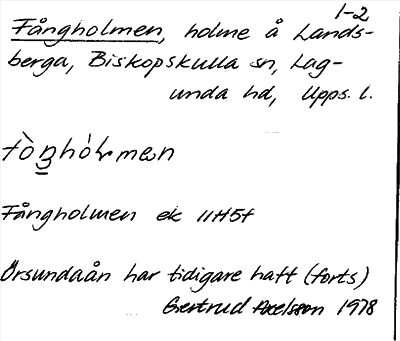 1-2
Fångholmen, holme å Lands-
berga, Biskopskulla sn, Lag-
unda hd, Upps. l.
Fångholmen ek 11H5f
Örsundaån har tidigare haft (forts)
Gertrud Axelsson 1978